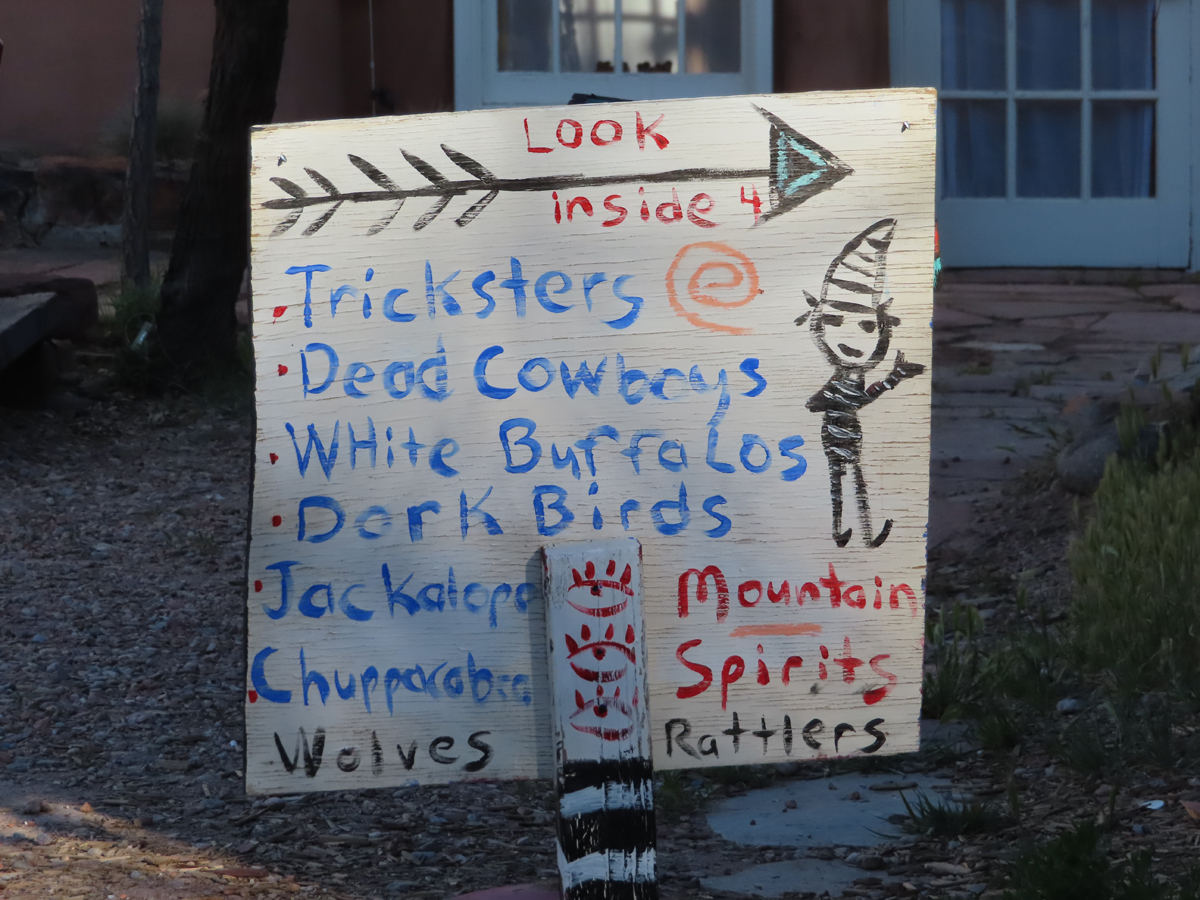 Look
inside 4
• Tricksters
• Dead Cowboys
• WHite BuffaLos
• Dark Birds
• Jackalope
Mountain
• Chuppacabra
Spirits
Wolves
Rattlers